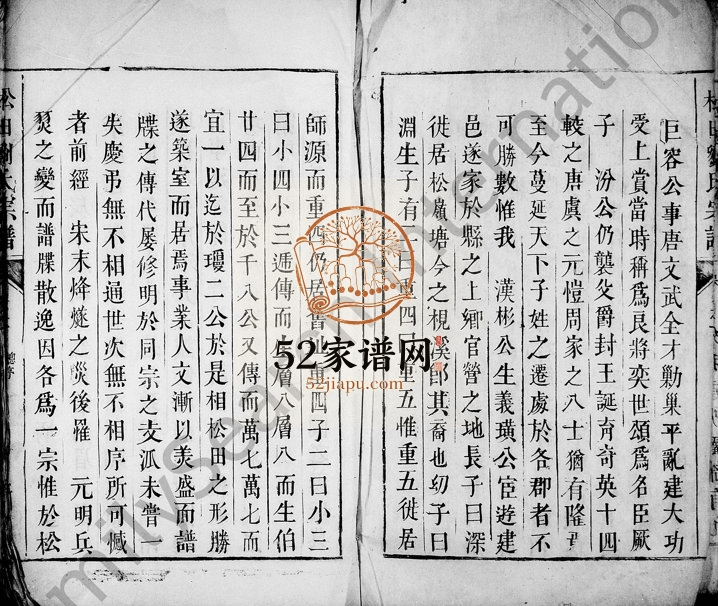 巨容公事唐文武全才勦巢平亂建大功
受上賞當時稱爲良將奕世頌爲名臣厥
子 汾公仍襲父爵封王誕育奇英十四
較之唐虞之元愷周家之八士猶有隆
至今蔓延天下子姓之遷處於各郡者不
可勝數惟我 漢彬公生義璜公宦遊建
邑遂家於縣之上鄉官營之地長子曰深
徙居松嶺塘今之梘溪郎其裔也幼子曰
淵生子有 曰 四 重五惟重五徙居
師源而重四仍居 重四子二曰小三
曰小四小三遞傳而 層八層八而生伯
廿四而至於千八公又傳而萬七萬七而
宜一以迄於瓊二公於是相松田之形勝
遂築室而居焉事業人文漸以美盛而譜
牒之傳代屡修明於同宗之支派未嘗一
失慶弔無不相通世次無不相序所可慽
者前經 宋末烽燧之災後罹 元明兵
燹之變而譜牒散逸因各爲一宗惟於松
松田劉氏宗譜
總序
52家谱网
52jiapu.com